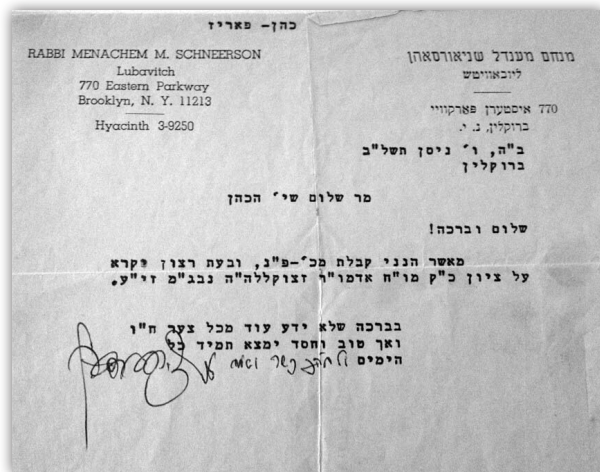 כהן- פאריז
RABBI MENACHEM M. SCHNEERSON
Lubavitch
770 Eastern Parkway
Brooklyn, N. Y. 11213
Hyacinth 3-9250
מנחם מענדל שניאורסאהן
ליובאוויטש
770 איסטערן פארקוויי
ברוקלין, נ. י.
ב"ה, ו' ניסן תשל"ב
ברוקלין
מר שלום שי' הכהן
שלום וברכה!
מאשר הנני קבלת מכ'-פ"נ, ובעת רצון יקרא
על ציון כ"ק מו"ח אדמו"ר זצוקללה"ה נבג"מ זי"ע.
בברכה שלא ידע עוד מכל צער ח"ו
ואך טוב וחסד ימצא תמיד כל
הימים